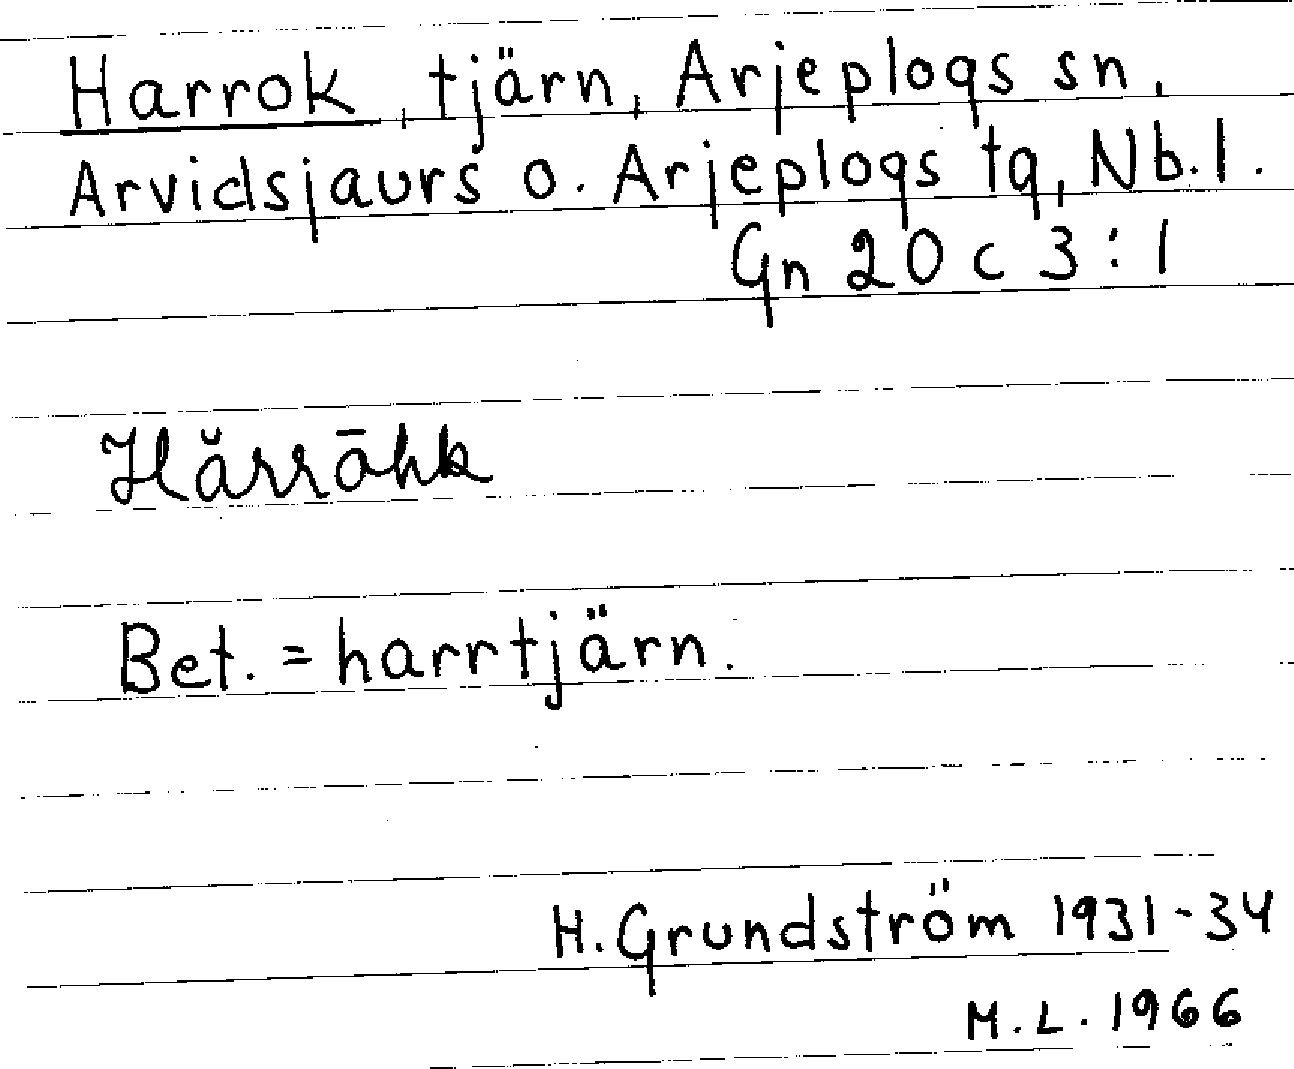 Harrok, tjärn, Arjeplogs sn,
Arvidsjaurs o. Arjeplogs tg, Nb.l.
Gn 20 c 3:1
Hărrāhk
Bet. = harrtjärn.
H. Grundström 1931-34
M.L. 1966